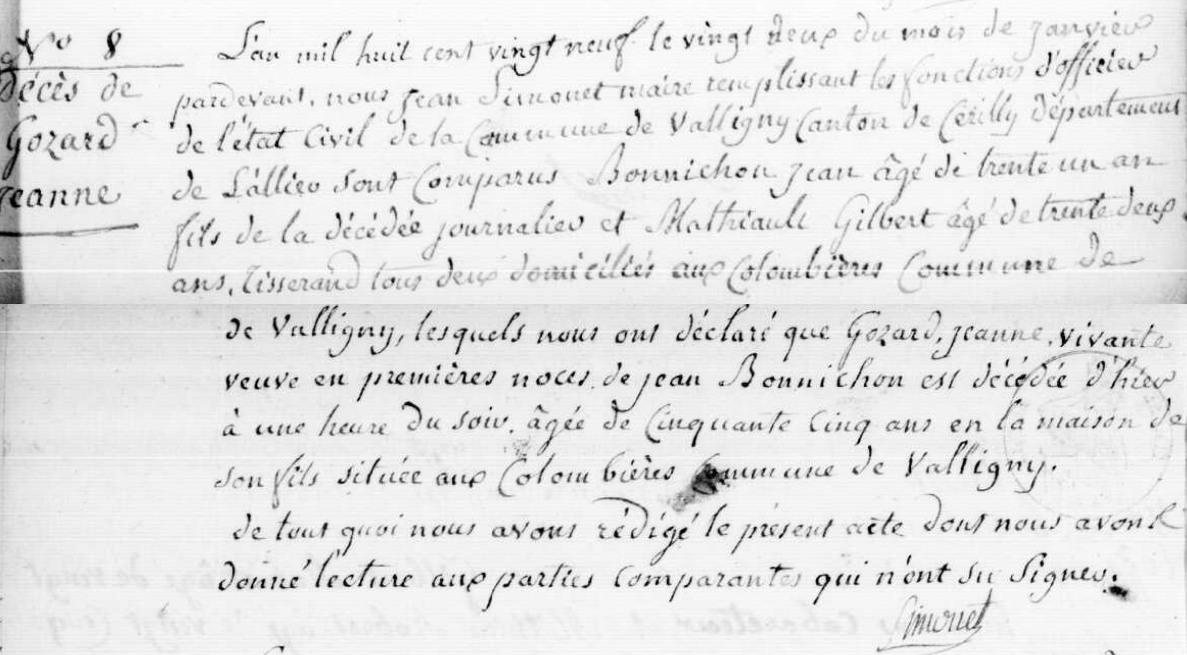 N.o 8
décès de
Gozard
Jeanne
L'an mil huit cent vingt neuf le vingt deux du mois de janvier
pardevant, nous Jean Simonet maire remplissant les fonctions d'officier
de l'état Civil de la Commune de Valligny Canton de Cérilly département
de L'allier sont Comparus Bonnichon Jean âgé de trente un an
fils de la décédée journalier et Mathiault Gilbert âgé de trente deux
ans, Tisserand tous deux domiciliés aux Colombières Commune de
de Valligny, lesquels nous ont déclaré que Gozard, Jeanne, vivante
veuve en premières noces de jean Bonnichon est décédée d'hier
à une heure du soir, âgée de Cinquante Cinq ans en la maison de
son fils située aux Colombières Commune de Valligny.
de tout quoi nous avons rédigé le présent acte dont nous avons
donné lecture aux parties Comparantes qui n'ont su Signer.
Simonet